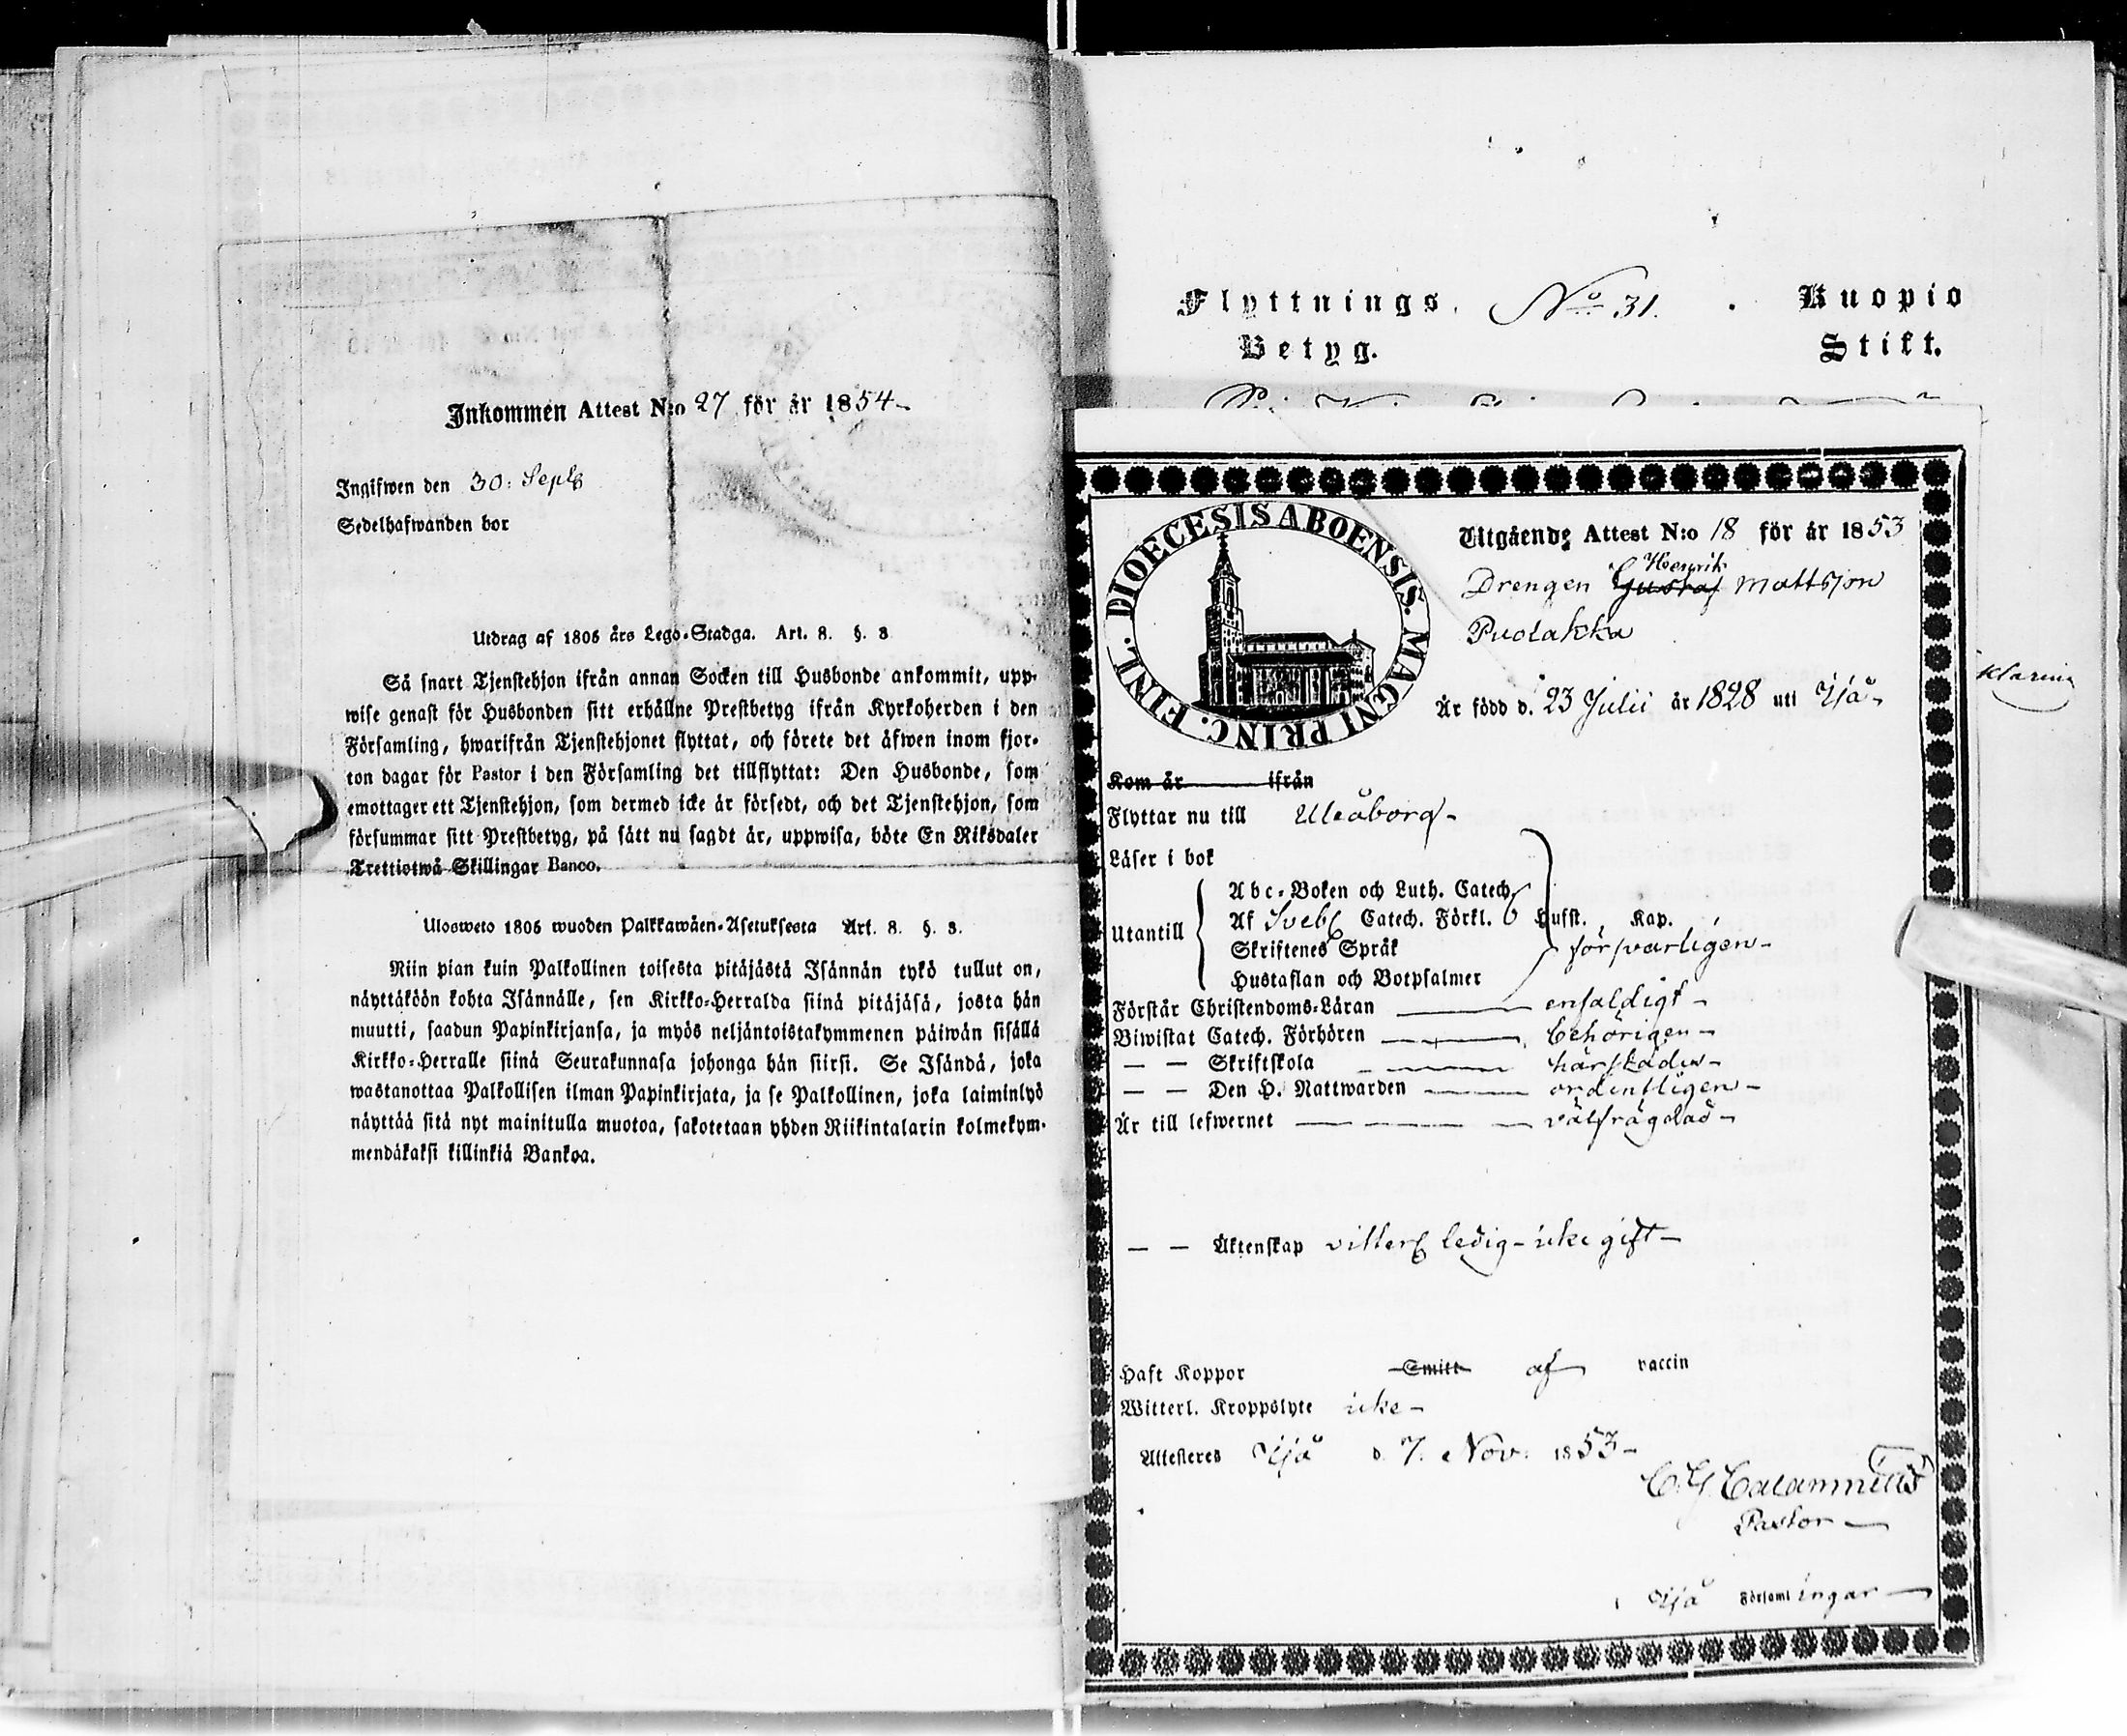 Inkommen Attest N:o 27 för år 1854
Ingifwen den 30: Sept
Sedelhafwanden bor
Utdrag af 1805 års Lego-Stadga. Art. 8. §. 3
Så snart Tjenstehjon ifrån annan Socken till Husbonde ankommit, upp-
wise genast för Husbonden sitt erhållne Prestbetyg ifrån Kyrkoherden i den
Församling, hwarifrån Tjenstehjonet flyttat, och förete det äfwen inom fjor-
ton dagar för Pastor i den Församling det tillflyttat: Den Husbonde, som
emottager ett Tjenstehjon, som dermed icke är försedt, och det Tjenstehjon, som
försummar sitt Prestbetyg, på sätt nu sagdt är, uppwisa, böte En Riksdaler
Trettiotwå Skillingar Banco.
Ulosweto 1805 wuoden Palkkawäen-Asetuksesta Art. 8. §. 3.
Niin pian kuin Palkollinen toisesta pitäjästä Isännän tykö tullut on,
näyttäköön kohta Isännälle, sen Kirkko-Herralda siinä pitäjäsä, josta hän
muutti, saadun Papinkirjansa, ja myös neljäntoistakymmenen päiwän sisällä
Kirkko-Herralle siinä Seurakunnasa johonga hän siirsi. Se Isändä, joka
wastanottaa Palkollisen ilman Papinkirjata, ja se Palkollinen, joka laiminlyö
näyttää sitä nyt mainitulla muotoa, sakotetaan yhden Riikintalarin kolmekym-
mendäkaksi killinkiä Bankoa.
Flyttnings. No 31. Kuopio
Betyg. Stift.
DIOECESIS ABOENSIS. MAGNI PRINC. FINL.
Utgående Attest N:o 18 för år 1853
Henrik
Drengen Gustaf Mattsson
Puolakka
Är född d. 23 Julii år 1828 uti Ijå
Kom år ifrån
Flyttar nu till Uleåborg
Läser i bok
Abc-Boken och Luth. Catech.
Utantill Af Sveb Catech. Förkl. 6 Hufst. Kap.
Skriftenes Språk försvarligen
Hustaflan och Botpsalmer
Förstår Christendoms-Läran enfaldigt
Biwistat Catech. Förhören behörigen
— — Skriftskola härstädes
— — Den H. Nattwarden ordentligen
Är till lefwernet välfrägdad
— — Äktenskap vitterl ledig - icke gift
Haft Koppor Smitt af vaccin
Witterl. Kroppslyte icke
Attesteres Ijå d. 7. Nov. 1853
C. G. Calamnius
Pastor
i Ijå Församlingar